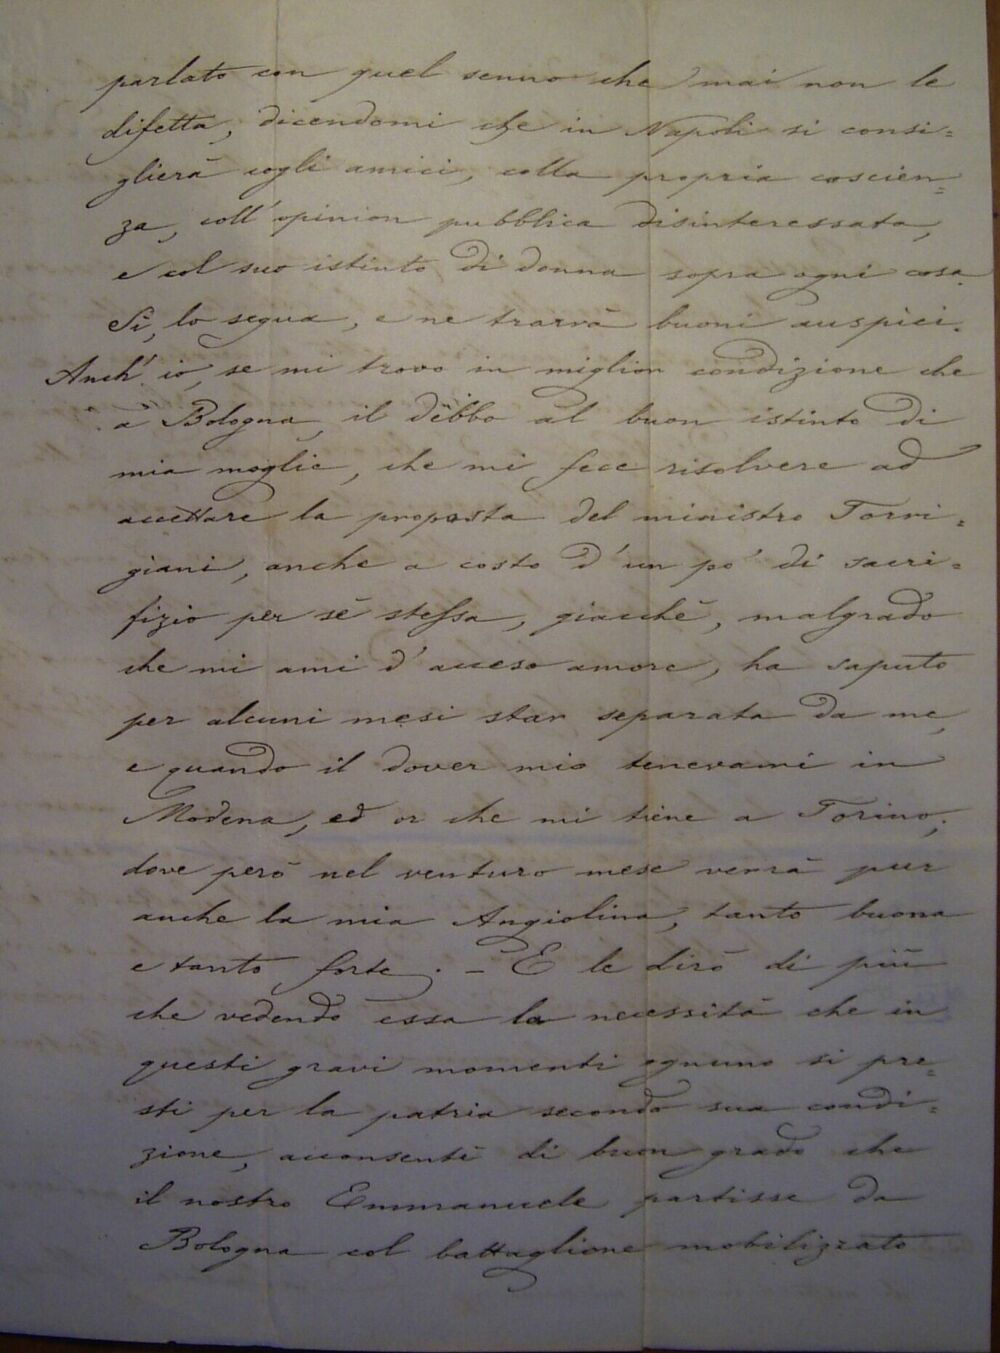 parlato con quel senno che mai non le
difetta, dicendomi che in Napoli si consi=
glierà cogli amici, colla propria coscien=
za, coll'opinion pubblica disinteressata,
e col suo istinto di donna sopra ogni cosa.
Sì, lo segua, e ne trarrà buoni auspici.
Anch' io, se mi trovo in miglior condizione che
a Bologna, il debbo al buon istinto di
mia moglie, che mi fece risolvere ad
accettare la proposta del ministro Torri=
giani, anche a costo d'un po' di sacri=
fizio per sè stessa, giacchè, malgrado
che mi ami d'acceso amore, ha saputo
per alcuni mesi star separata da me,
e quando il dover mio tenevami in
Modena, ed or che mi tiene a Torino,
dove però nel venturo mese verrà pur
anche la mia Angiolina, tanto buona
e tanto forte. – E le dirò di più
che vedendo essa la necessità che in
questi gravi momenti ognuno si pre=
sti per la patria secondo sua condi=
zione, acconsentì di buon grado che
il nostro Emmanuele partisse da
Bologna col battaglione mobilizzato